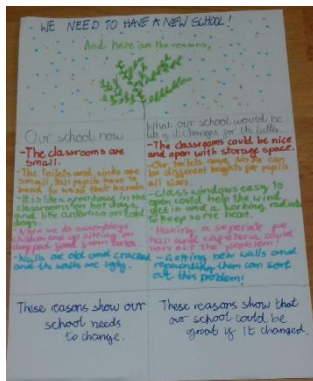 WE NEED TO HAVE A NEW SCHOOL!
And here are the reasons,
Our school now
- The classrooms are
small.
- The toilets and sinks are
small, but pupils have to
bend to wash their hands
- It is like a greenhouse in the
classrooms on hot days,
and like antarctica on cold
days.
- When we do assemblys
children end up sitting on
dropped food from lunch.
- Walls are old and cracked
and the walls are ugly.
These reasons show our
school needs
to change.
What our school would be
like if it changes for the better.
- The classrooms could be nice
and open with storage space.
- Our toilets and sinks can
be different heights for pupils
all sizes.
- Glass windows easy to
open could help the wind
get in and a working radiator
to keep some heat.
- Having a separate pe
hall and cafeteria could
sort out the problem!
- Getting new walls and
repainting them can sort
out this problem!
These reasons show that
our school could be
great if it changed.